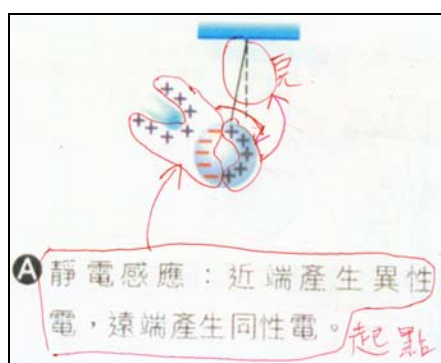 見
A 靜電感應：近端產生異性
電，遠端產生同性電。起點